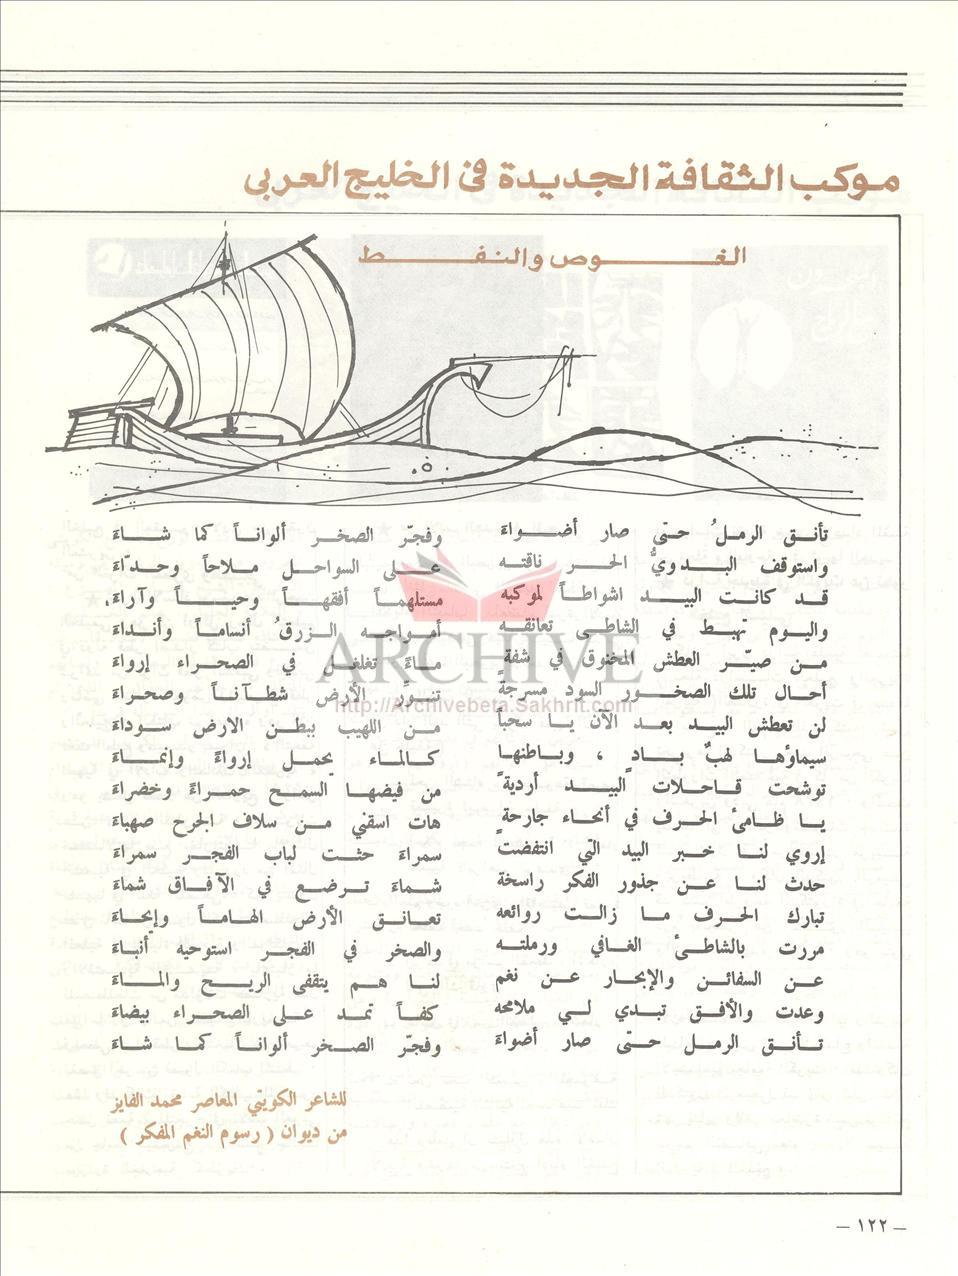 موكب الثقافة الجديدة في الخليج العربي
الغوص والنفط
تأنق الرملُ حتّى صار أضواءَ وفجّر الصخر ألواناً كما شاءَ
واستوقف البدويُّ الحر ناقته على السواحل ملاحاً وحدّاءَ
قد كانت البيد اشواطاً لموكبه مستلهماً أفقهاً وحياً وآراءَ.
واليوم تهبط في الشاطى تعانقه أمواجه الزرقُ أنساماً وأنداءَ
من صيّر العطش المخنوق في شفة ماءً تغلغل في الصحراء إرواءَ
أحال تلك الصخور السود مسرجةً تنوّر الأرض شطآناً وصحراءَ
لن تعطش البيد بعد الآن يا سحباً من اللهيب ببطن الارض سوداءَ
سيماؤها لهبٌ بادٍ ، وباطنها كالماء يحمل إرواءً وإنماءَ
توشحت قاحلات البيد أرديةً من فيضها السمح حمراءً وخضراءَ
يا ظامئ الحرف في أنحاء جارحةٍ هات اسقني من سلاف الجرح صهباءَ
إروي لنا خبر البيد التي انتفضت سمراءَ حثت لباب الفجر سمراءَ
حدث لنا عن جذور الفكر راسخة شماءَ ترضع في الآفاق شماءَ
تبارك الحرف ما زالت روائعه تعانق الأرض الهاماً وإيحاءَ
مررت بالشاطئ الغافي ورملته والصخر في الفجر استوحيه أنباءَ
عن السفائن والإبحار عن نغم لنا هم يتقفى الريح والماءَ
وعدت والأفق تبدي لي ملامحه كفاً تمد على الصحراء بيضاءَ
تأنق الرمل حتّى صار أضواءَ وفجّر الصخر ألواناً كما شاءَ
للشاعر الكويتي المعاصر محمد الفايز
من ديوان ( رسوم النغم المفكر )
ARCHIVE
http://Archivebeta.Sakhrit.com
— ١٢٢ —